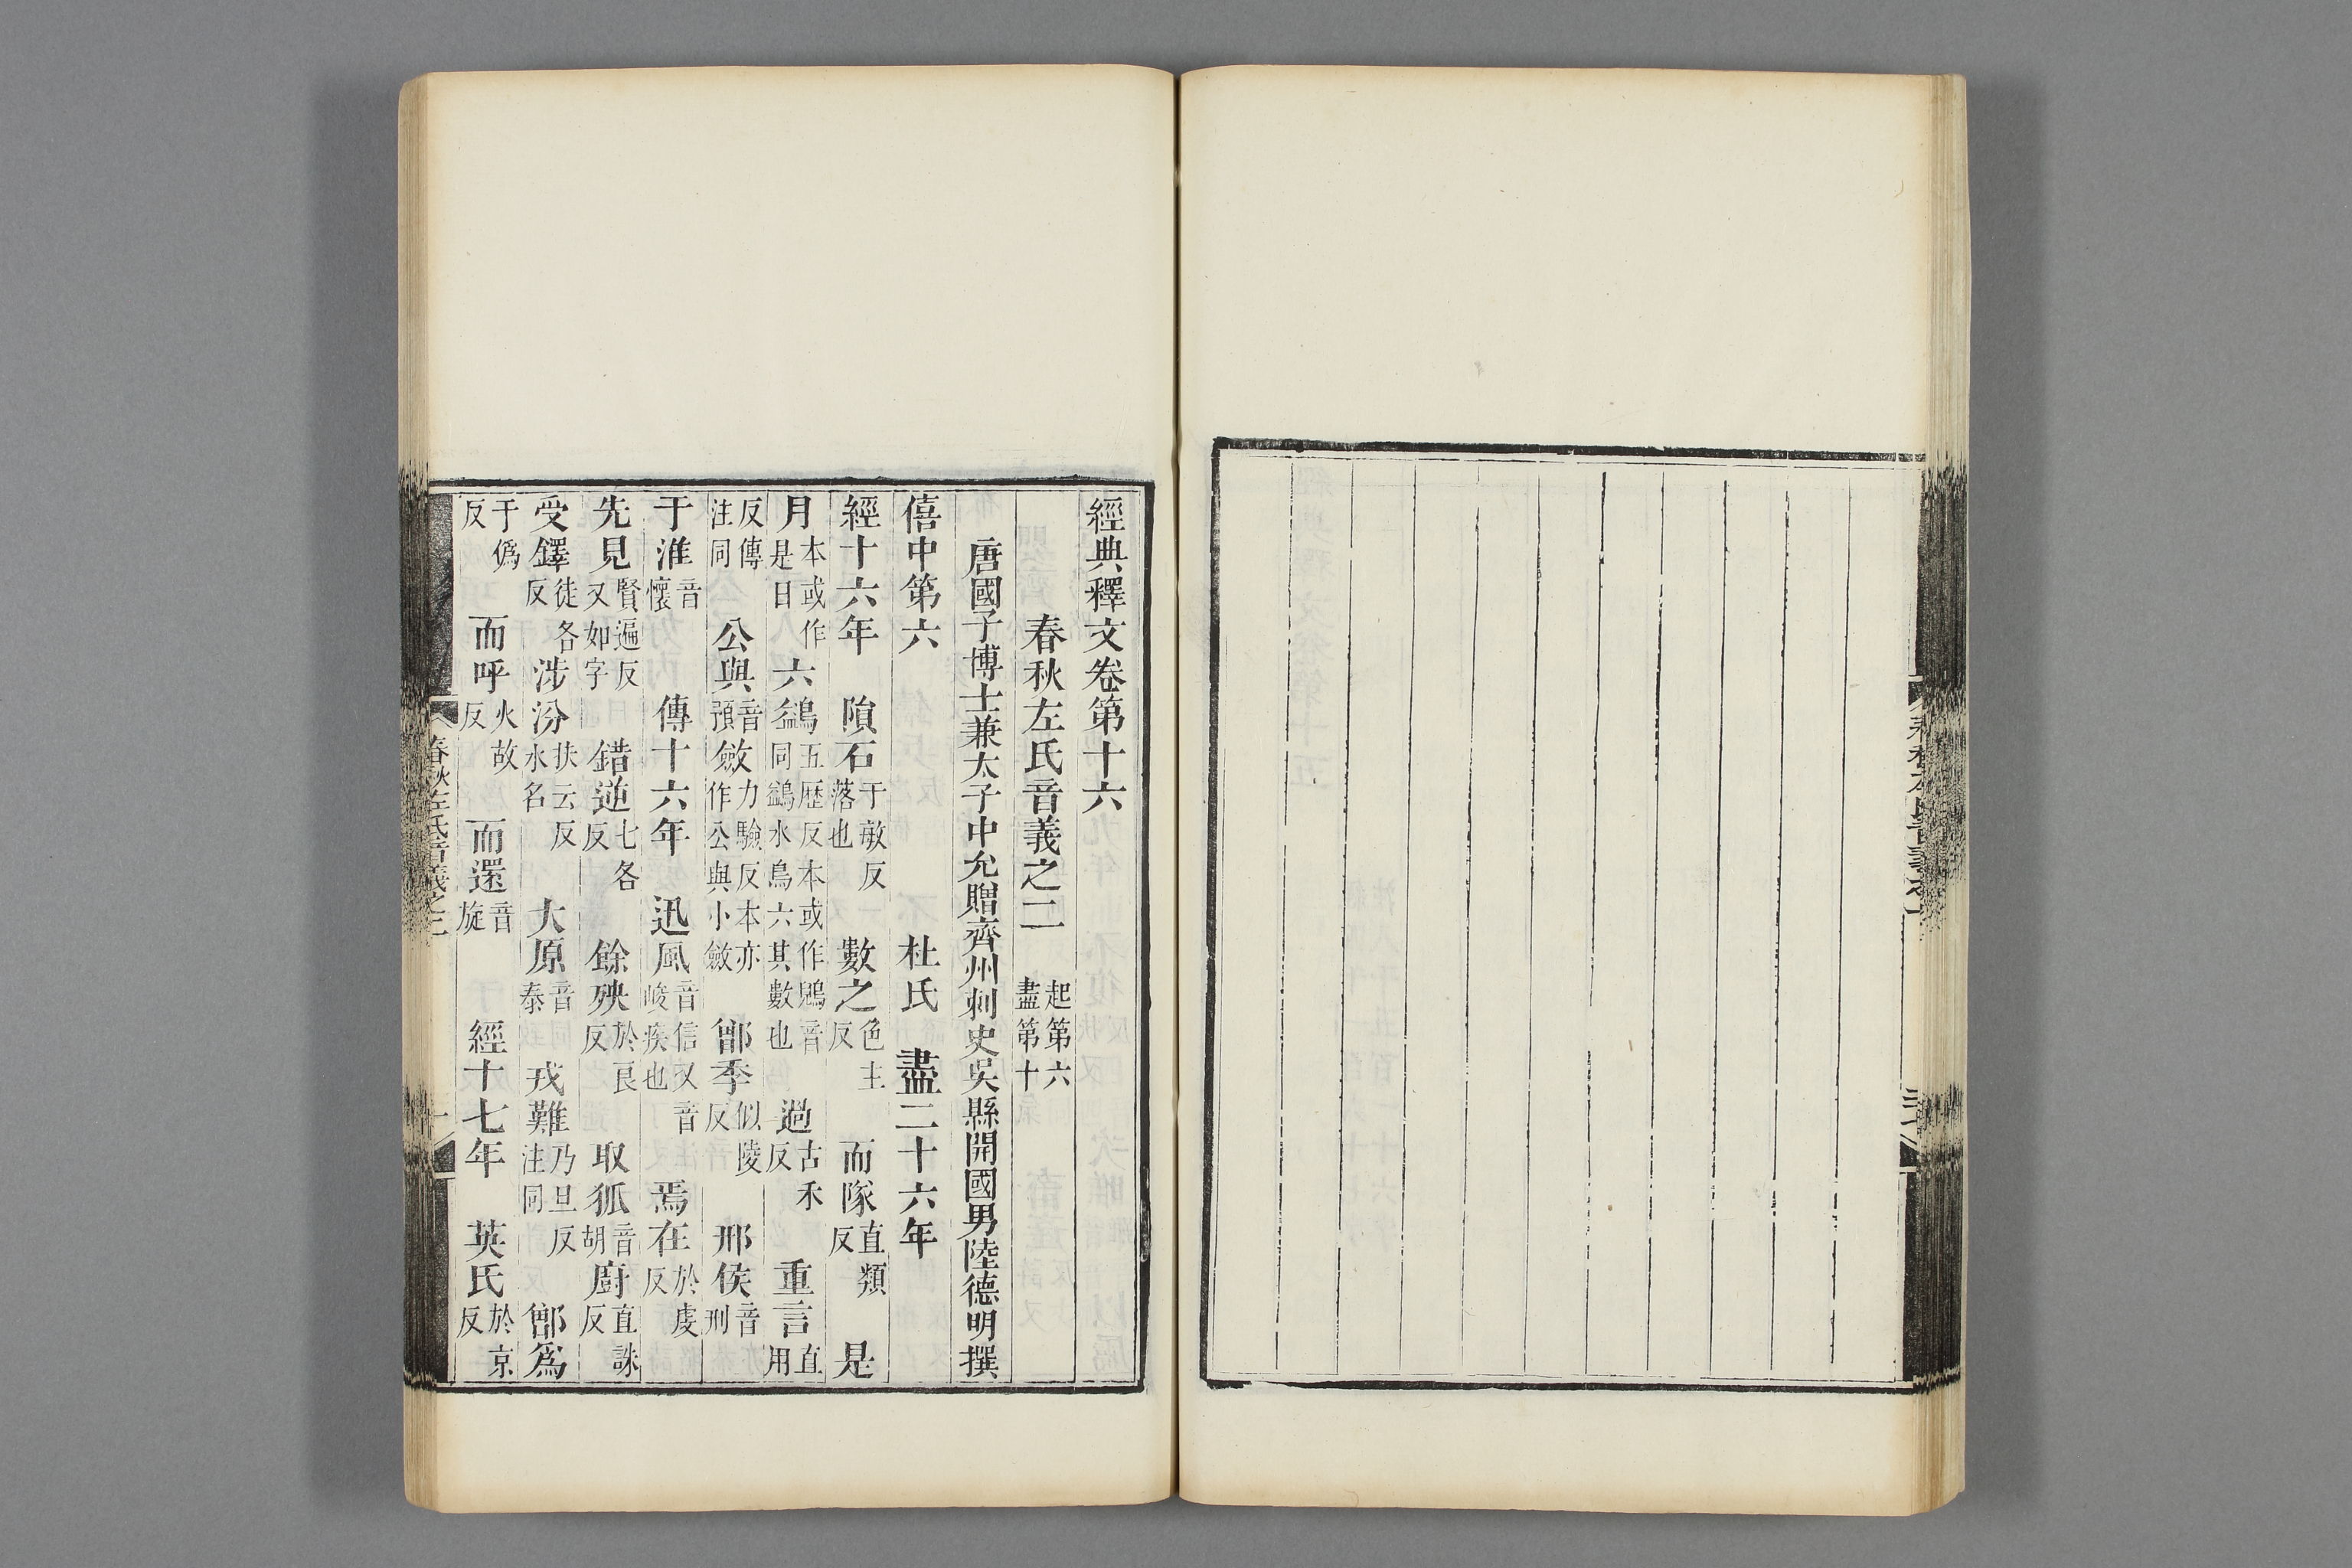 經典釋文卷第十六
春秋左氏音義之二 起第六盡第十
唐國子博士兼太子中允贈齊州刺史吳縣開國男陸德明撰
僖中第六 杜氏 盡二十六年
經十六年 隕石于敏反落也 數之色主反 而隊直類反 是
月本或作是日 六鷁五歷反本或作鶂音同鷁水鳥六其數也 過古禾反 重言直用
反傳注同 公與音預 斂力驗反本亦作公與小斂 鄫季似陵反 邢侯音刑
于淮音懷 傳十六年 迅風音信又音峻疾也 焉在於虔反
先見賢遍反又如字 錯逆七各反 餘殃於良反 取狐音胡 廚直誅反
受鐸徒各反 涉汾扶云反水名 大原音泰 戎難乃旦反注同 鄫爲
于僞反 而呼火故反 而還音旋 經十七年 英氏於京反
春秋左氏音義之二
一